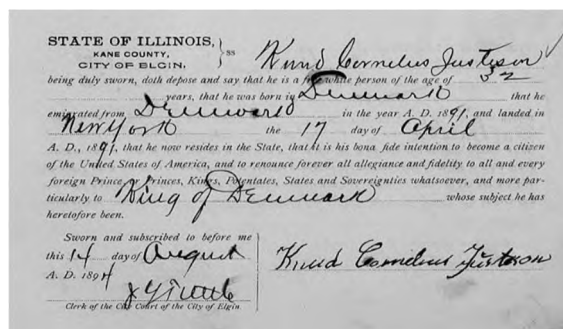 STATE OF ILLINOIS,
KANE COUNTY,
CITY OF ELGIN,
} ss
Knud Cornelius Justeson
being duly sworn, doth depose and say that he is a free white person of the age of 32
years, that he was born in Denmark that he
emigrated from Denmark in the year A. D. 1891, and landed in
New York the 17 day of April
A. D., 1891, that he now resides in the State, that it is his bona fide intention to become a citizen
of the United States of America, and to renounce forever all allegiance and fidelity to all and every
foreign Prince or Princes, Kings, Potentates, States and Sovereignties whatsoever, and more par-
ticularly to King of Denmark whose subject he has
heretofore been.
Sworn and subscribed to before me
this 14 day of August
A. D. 1894
Knud Cornelius Justeson
Clerk of the City Court of the City of Elgin.